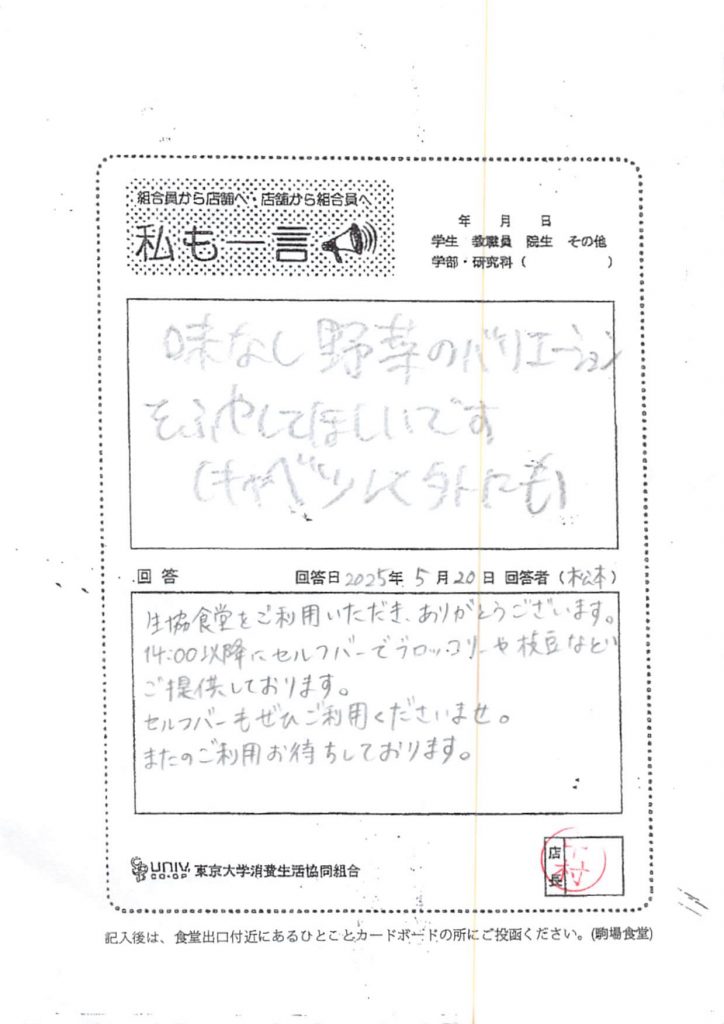 組合員から店舗へ・店舗から組合員へ
私も一言
年 月 日
学生 教職員 院生 その他
学部・研究科 ( )
味なし野菜のバリエーション
をふやしてほしいです
(キャベツ以外にも)
回答 回答日 2025年 5月 20日 回答者 (松本)
生協食堂をご利用いただき、ありがとうございます。
14:00以降にセルフバーでブロッコリーや枝豆など
ご提供しております。
セルフバーもぜひご利用くださいませ。
またのご利用お待ちしております。
UNIV. CO-OP 東京大学消費生活協同組合
店長
記入後は、食堂出口付近にあるひとことカードボードの所にご投函ください。(駒場食堂)